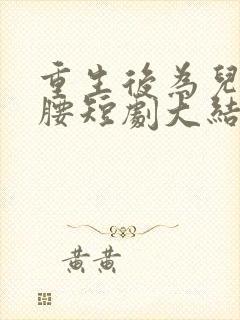 重生後為兒
腰短劇大結
黃黃